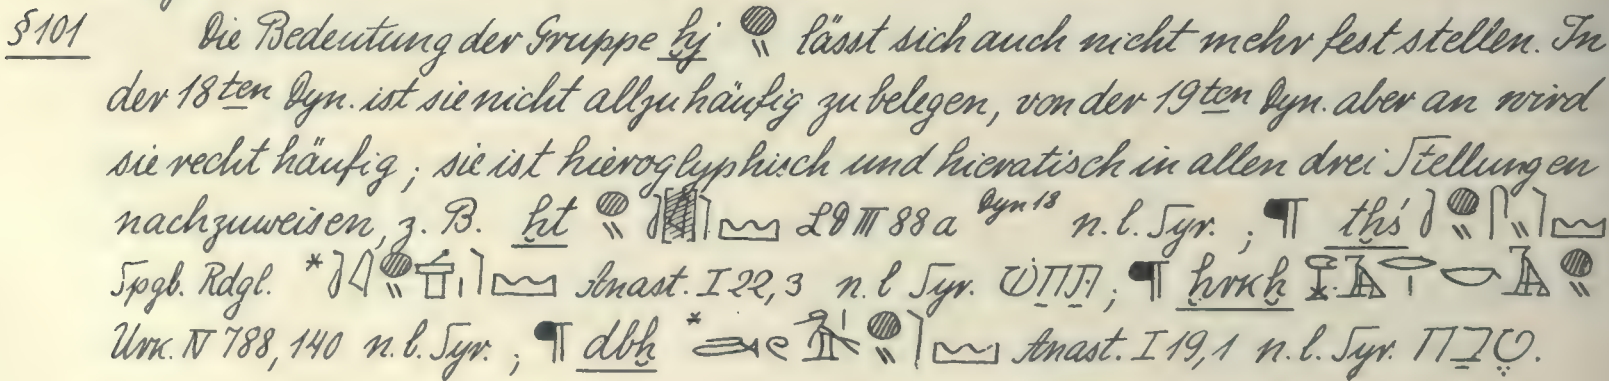 §101 Die Bedeutung der Gruppe ḫj lässt sich auch nicht mehr fest stellen. In
der 18ten Dyn. ist sie nicht allzu häufig zu belegen, von der 19ten Dyn. aber an wird
sie recht häufig; sie ist hieroglyphisch und hieratisch in allen drei Stellungen
nachzuweisen, z. B. ḫt LD III 88a Dyn 18 n. l. Syr. ; ¶ tḫś
Spgb. Rdgl. * Anast. I 22,3 n. l Syr. תחש ; ¶ ḫrkḫ
Urk. IV 788,140 n. l. Syr. ; ¶ dbḫ * Anast. I 19,1 n. l. Syr. טבח.